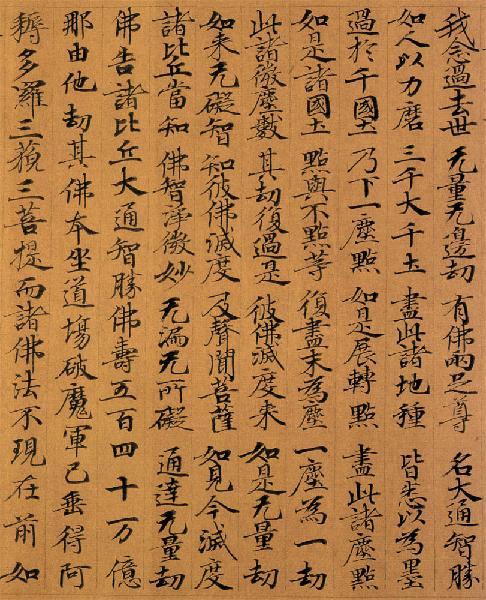 我念過去世 无量无邊劫 有佛兩足尊 名大通智勝
如人以力磨 三千大千土 盡此諸地種 皆悉以為墨
過於千國土 乃下一塵點 如是展轉點 盡此諸塵點
如是諸國土 點與不點等 復盡末為塵 一塵為一劫
此諸微塵數 其劫復過是 彼佛滅度来 如是无量劫
如来无礙智 知彼佛滅度 及聲聞菩薩 如見今滅度
諸比丘當知 佛智淨微妙 无漏无所礙 通達无量劫
佛告諸比丘大通智勝佛壽五百四十万億
那由他劫其佛本坐道場破魔軍已垂得阿
耨多羅三藐三菩提而諸佛法不現在前如